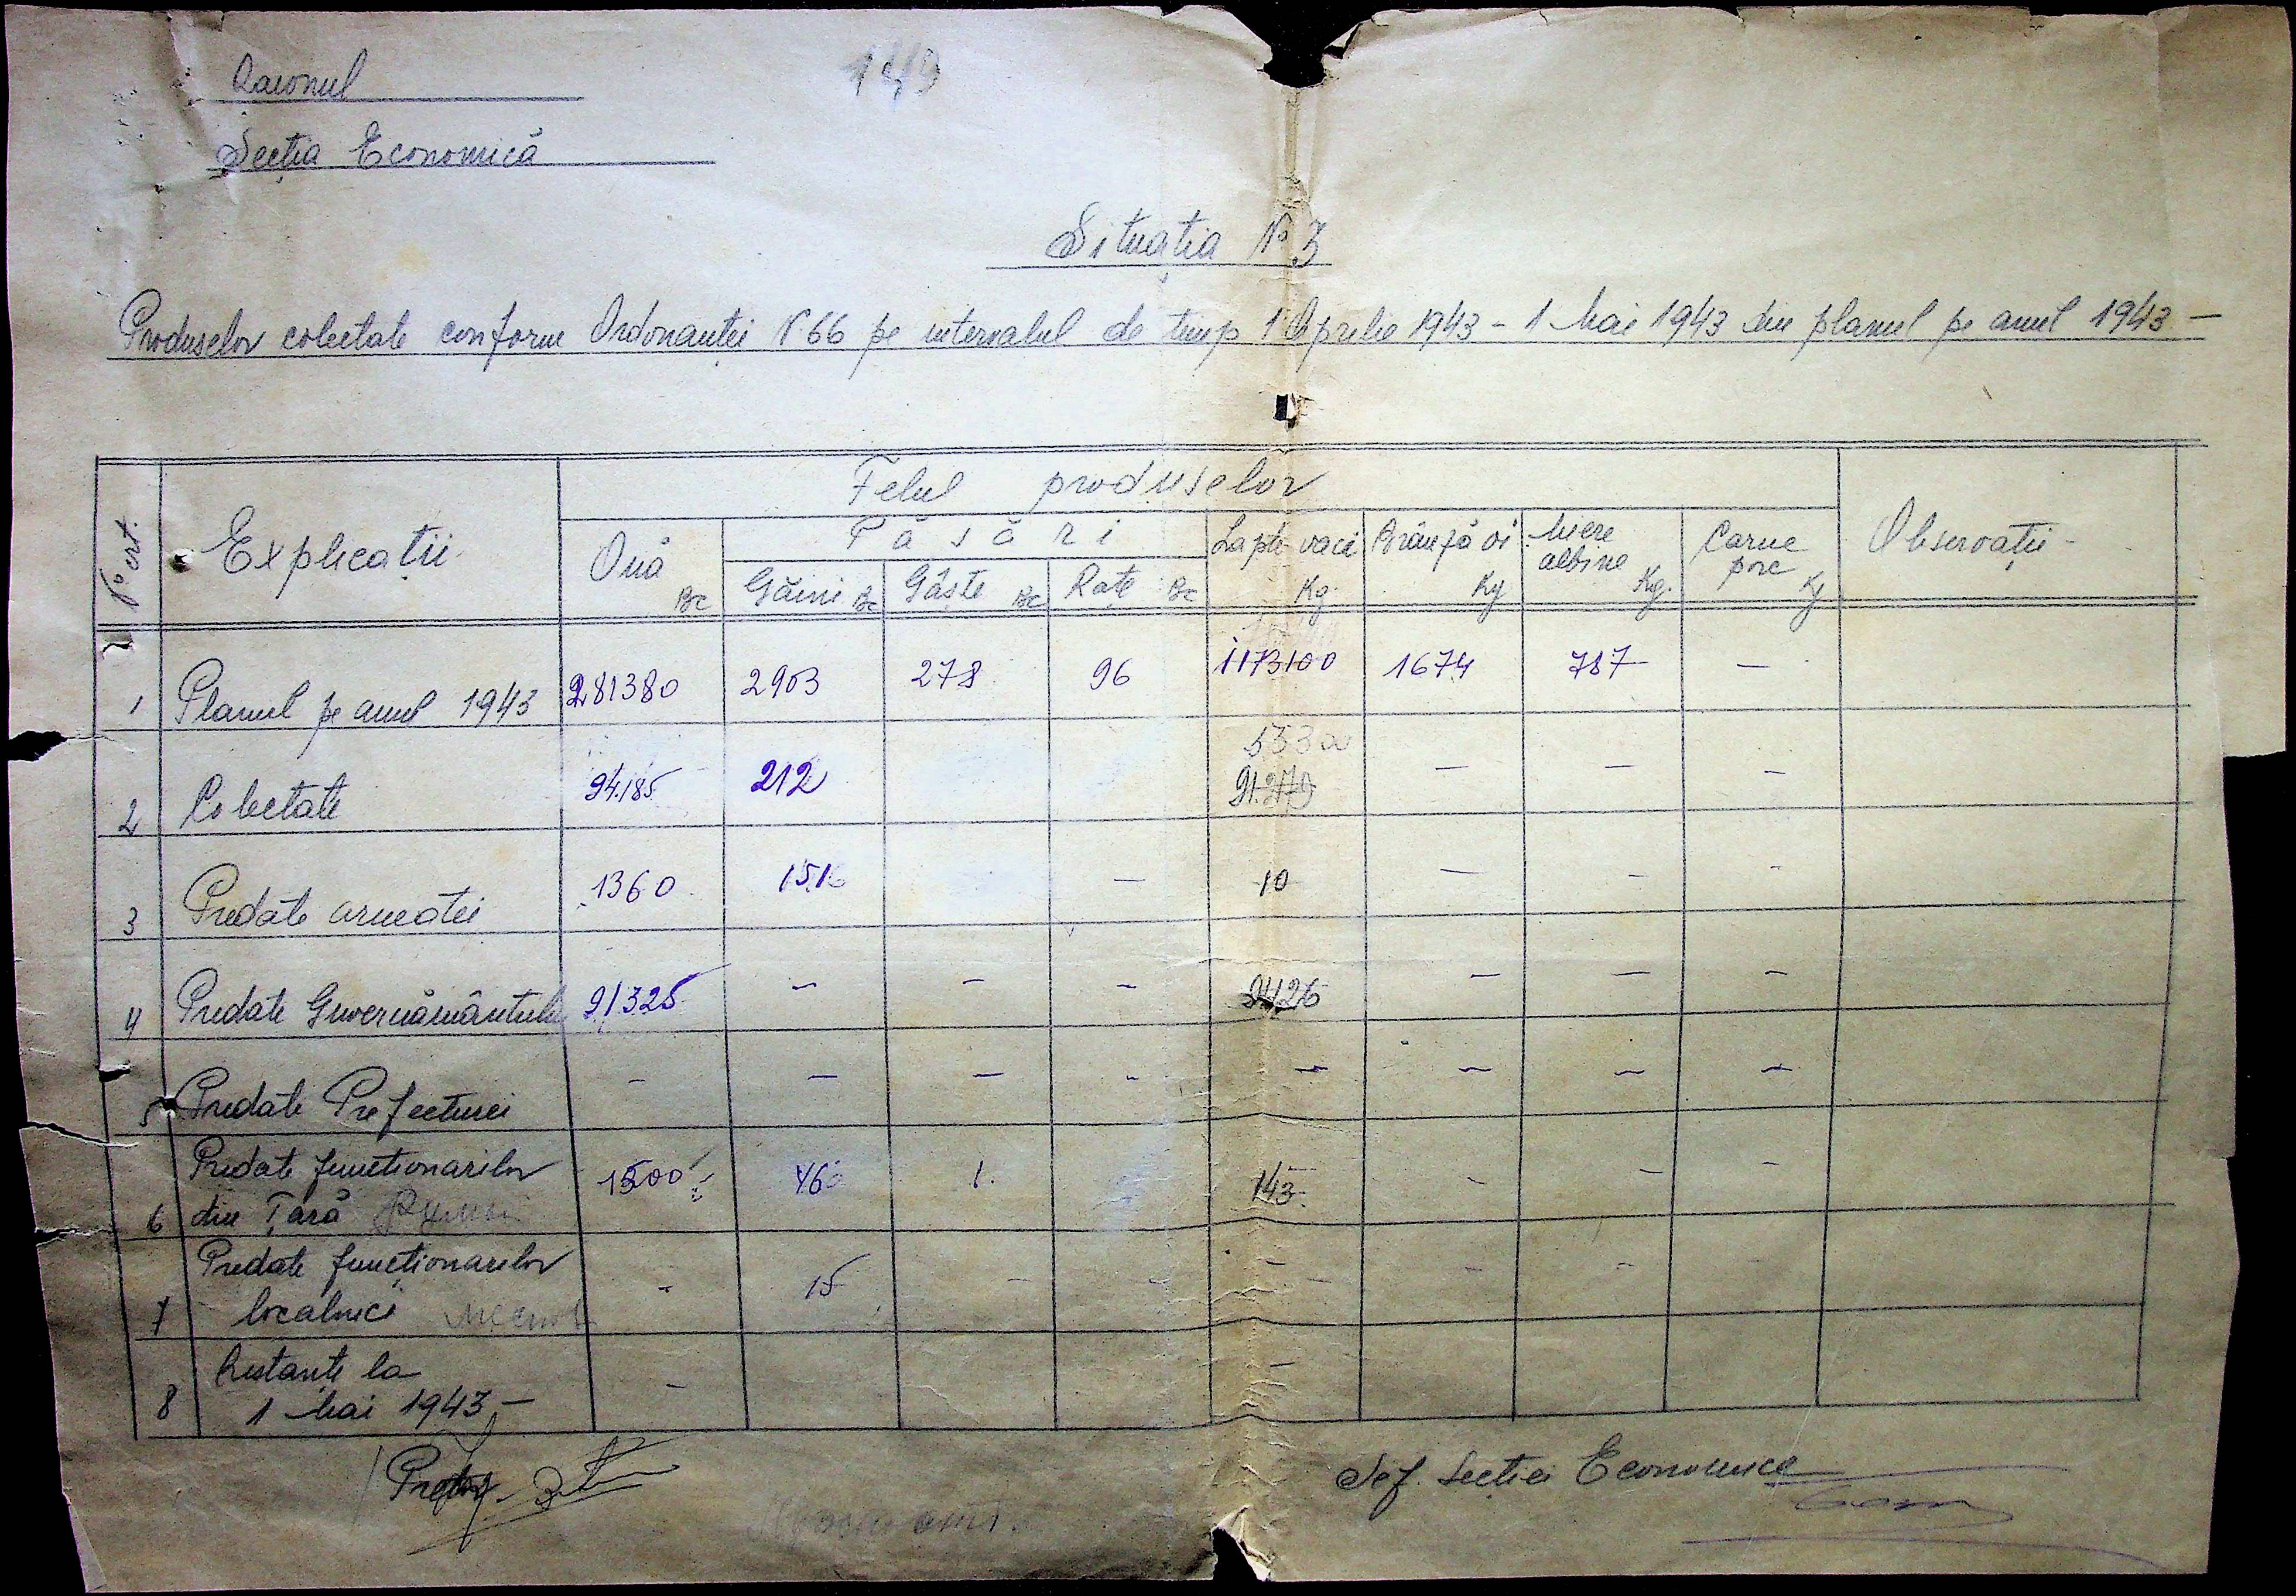 149
Raionul
Secția Economică
Situația No 3
Produselor colectate conform Ordonanței N. 66 pe intervalul de timp 1 Aprilie 1943 - 1 Mai 1943 din planul pe anul 1943 -
No crt. Explicații Felul produselor Observații -
Ouă Bc Păsări Lapte vaci Kg. Brânză oi Kg Miere albine Kg. Carne porc Kg
Găini Bc Gâște Bc Rațe Bc
1 Planul pe anul 1943 281380 2903 278 96 1173100 1674 787 —
5330
2 Colectate 94.185 212 91.279 — — —
3 Predate armatei 1360 151 — 10 — - -
4 Predate Guvernământului 91325 — — — 2426 — — —
5 Predate Prefecturei - — — - — — — —
Predate functionarilor
6 din Țară 1500 46 1. 143 - — -
Predate funcționarilor
7 localnici - 15 - - - - -
Restanțe la
8 1 Mai 1943 - - -
Pretor
Șef. Secției Economice